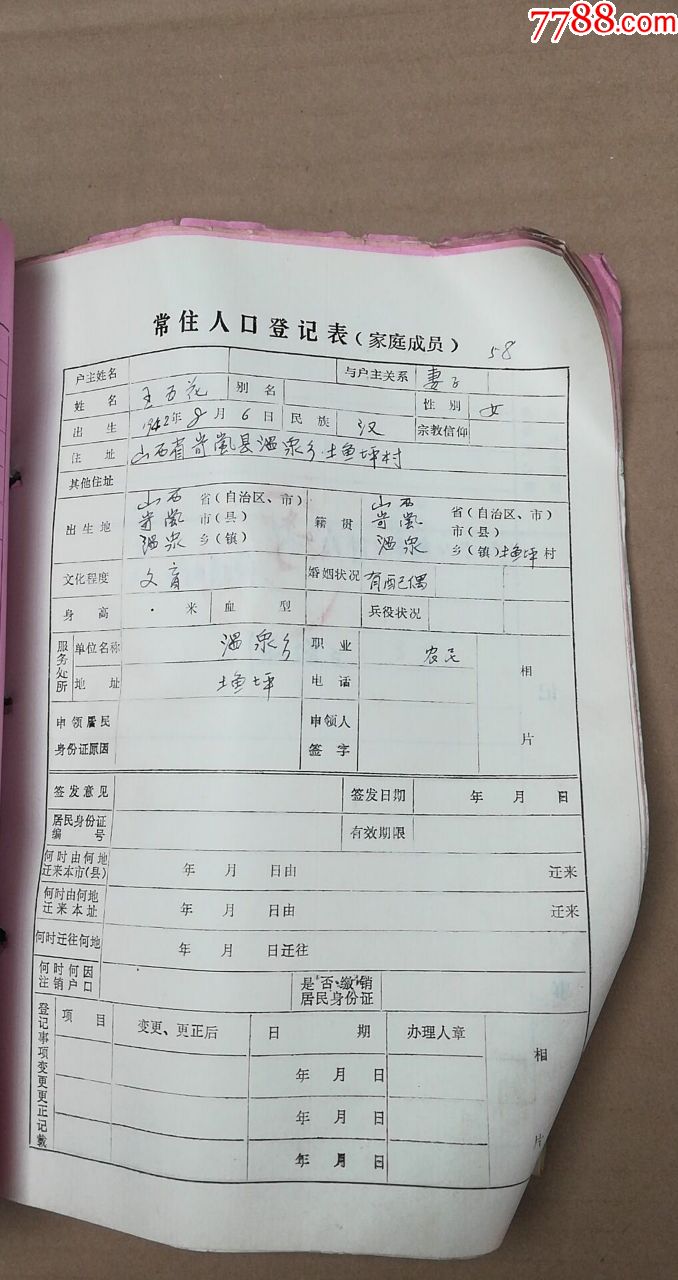 7788.com
常住人口登记表（家庭成员） 58
户主姓名 与户主关系 妻子
姓名 王万花 别名 性别 女
出生 1942年8月6日 民族 汉 宗教信仰
住址 山西省岢岚县温泉乡土鱼坪村
其他住址
出生地 山西 省（自治区、市） 岢岚 市（县） 温泉 乡（镇）
籍贯 山西 省（自治区、市） 岢岚 市（县） 温泉 乡（镇）土鱼坪村
文化程度 文盲 婚姻状况 有配偶
身高 · 米 血型 兵役状况
服务处所 单位名称 温泉乡 职业 农民
地址 土鱼坪 电话
相片
申领居民身份证原因 申领人签字
签发意见 签发日期 年 月 日
居民身份证编号 有效期限
何时由何地迁来本市（县） 年 月 日由 迁来
何时由何地迁来本址 年 月 日由 迁来
何时迁往何地 年 月 日迁往
何时何因注销户口 是否缴销居民身份证
登记事项变更更正记载 项目 变更、更正后 日期 办理人章
年 月 日
年 月 日
年 月 日
相片